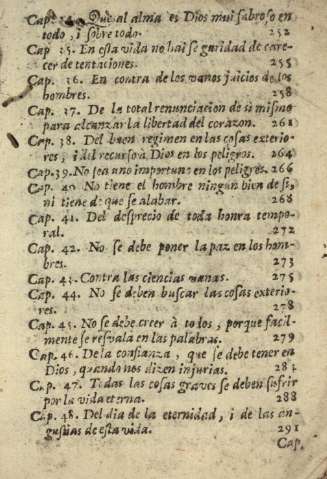 Cap. 34. Que al alma es Dios mui sabroso en
todo, i sobre todo. 252
Cap. 35. En esta vida no hai seguridad de care-
cer de tentaciones. 255
Cap. 36. En contra de los vanos juicios de los
hombres. 258
Cap. 37. De la total renunciacion de si mismo
para alcanzar la libertad del corazon. 261
Cap. 38. Del buen regimen en las cosas exterio-
res, i del recurso à Dios en los peligros. 264
Cap. 39. No sea uno importuno en los peligros. 266
Cap. 40. No tiene el hombre ningun bien de si,
ni tiene de que se alabar. 268
Cap. 41. Del desprecio de toda honra tempo-
ral. 272
Cap. 42. No se debe poner la paz en los hom-
bres. 273
Cap. 43. Contra las ciencias vanas. 275
Cap. 44. No se deben buscar las cosas exterio-
res. 278
Cap. 45. No se debe creer à todos, porque facil-
mente se resvala en las palabras. 279
Cap. 46. De la confianza, que se debe tener en
Dios, quando nos dizen injurias. 283
Cap. 47. Todas las cosas graves se deben sufrir
por la vida eterna. 288
Cap. 48. Del dia de la eternidad, i de las an-
gustias de esta vida. 291
Cap.